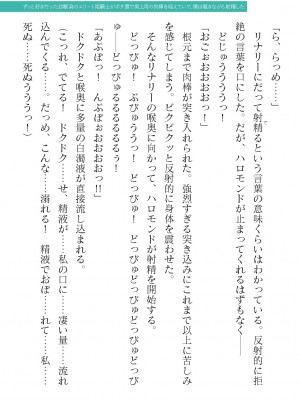 「ら、らっめ……」
　リナリーにだって射精るという言葉の意味くらいはわかっている。反射的に拒
絶の言葉を口にした。だが、ハロモンドが止まってくれるはずもなく――
　どじゅううううっ！
「おごぉおおおおおっ！」
　根元まで肉棒が突き入れられた。強烈すぎる突き込みにこれまで以上に苦しみ
を感じてしまう。ビクビクッと反射的に身体を震わせた。
　そんなリナリーの喉奥に向かって、ハロモンドが射精を開始する。
　どっびゅ！　ぶびゅううっ！　どっびゅ！　どっびゅどっびゅどっびゅどっび
ゅ――どびゅるるるるるぅ！
「あぶぼっ！　んぶぼぉおおおおっ!!」
　ドクドクと喉奥に多量の白濁液が直接流し込まれる。
（こっれ、でてる！　ドクドク……せ、精液が……私の口に……凄い量……流れ
込んでくる……。だっめ、こんな……溺れる！　精液でおぼ……れて……私……
死ぬ……死ぬぅううっ！）